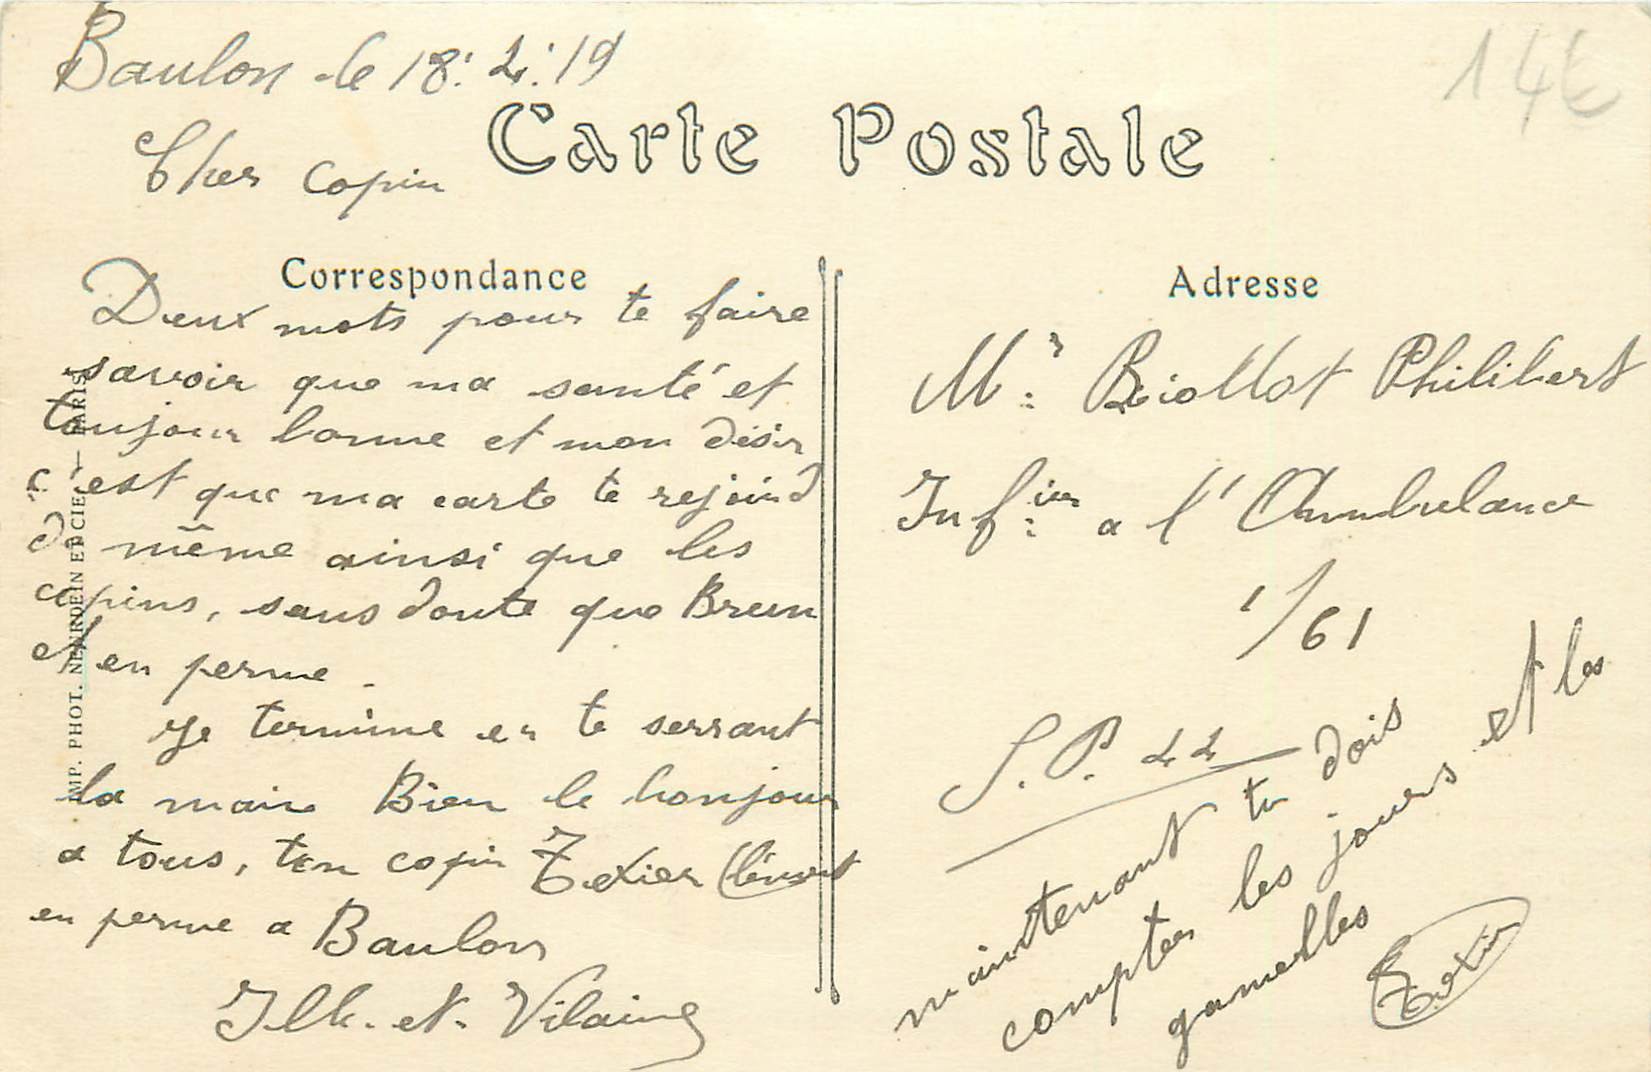 Baulon le 18.2.19
14€
Carte Postale
Cher copin
Correspondance
Deux mots pour te faire
savoir que ma santé et
toujour bonne et mon désir
c'est que ma carte te rejoind
de même ainsi que les
copins, sans doute que Brun
et en perme.
Je termine en te serrant
la main Bien le bonjour
a tous, ton copin Texier Clément
en perme a Baulon
Ille-et-Vilaine
IMP. PHOT. NEURDEIN ET CIE. — PARIS
Adresse
Mr Biollot Philibert
Infier a l'Ambulance
1/61
S.P. 22
maintenant tu dois
compter les jours et les
gamelles
Texier